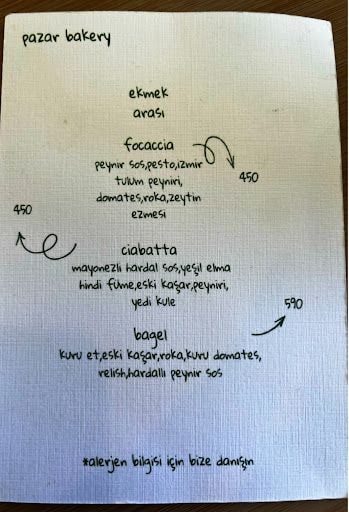 pazar bakery
ekmek
arası
focaccia
peynir sos,pesto,izmir
tulum peyniri,
450
domates,roka,zeytin
ezmesi
450
ciabatta
mayonezli hardal sos,yeşil elma
hindi füme,eski kaşar,peyniri,
yedi kule
590
bagel
kuru et,eski kaşar,roka,kuru domates,
relish,hardallı peynir sos
*alerjen bilgisi için bize danışın